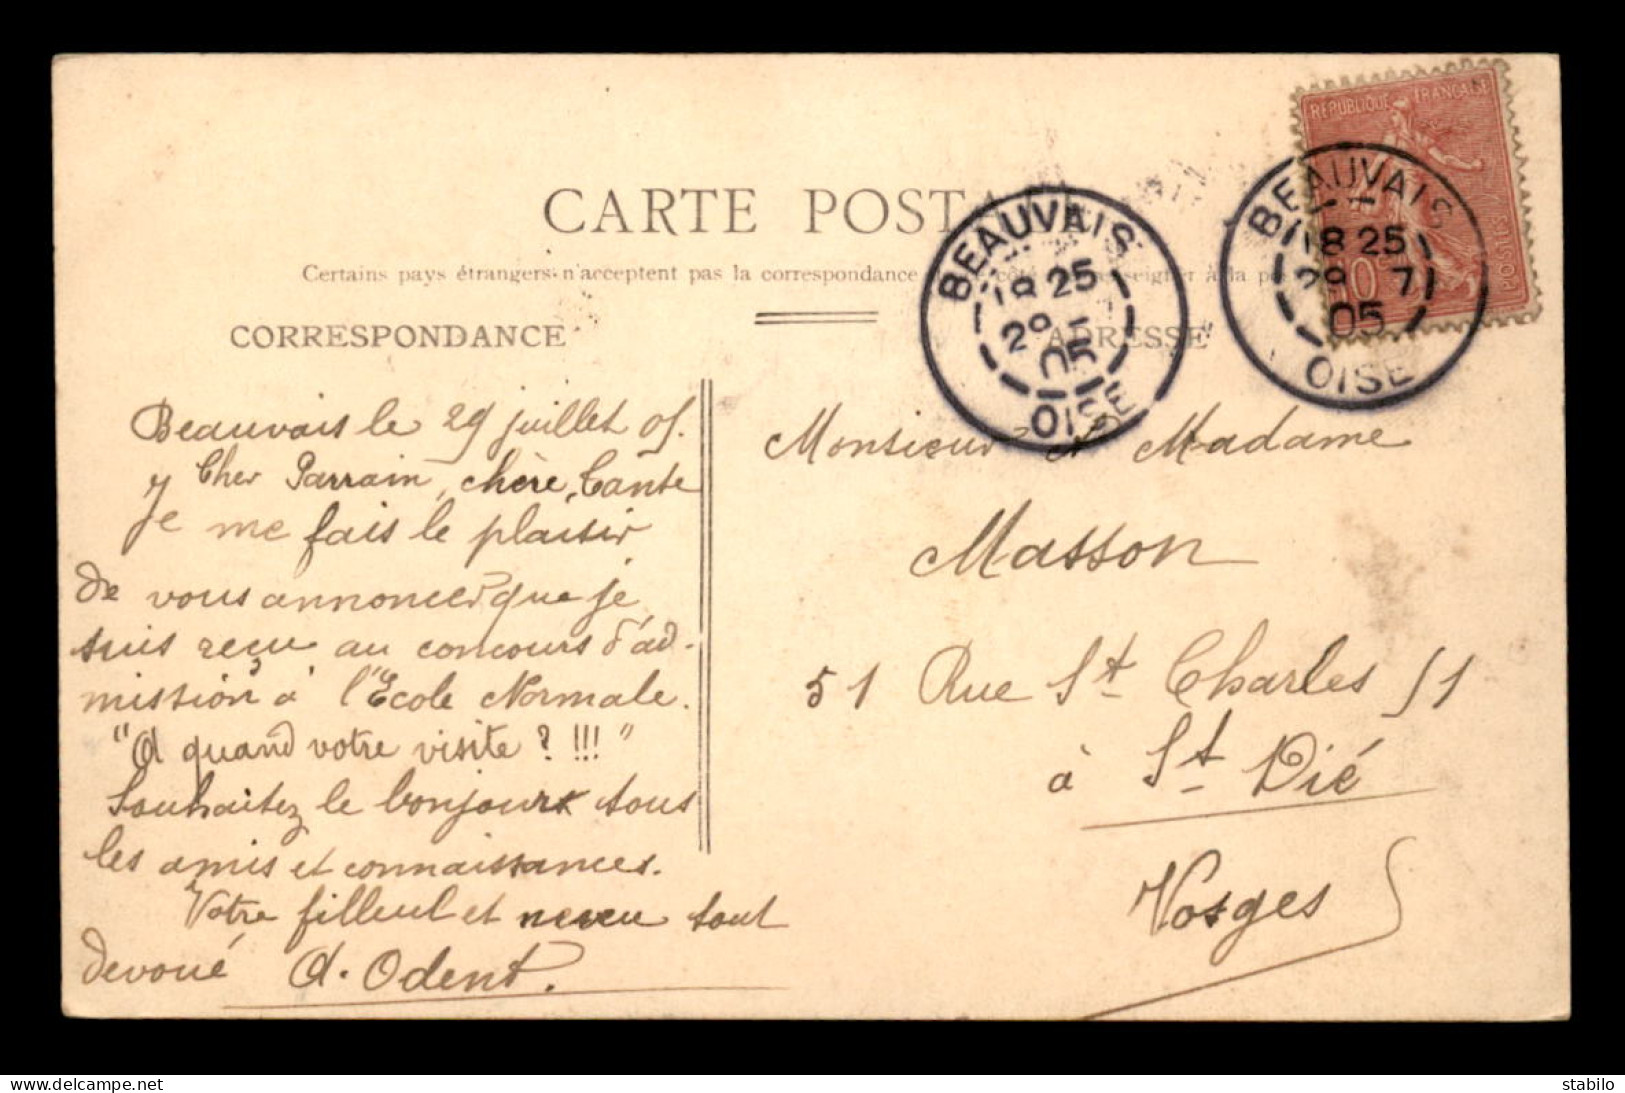 RÉPUBLIQUE FRANÇAISE
POSTES
CARTE POSTA
Certains pays étrangers n'acceptent pas la correspondance
CORRESPONDANCE
ADRESSE
BEAUVAIS
18 25
29
05
OISE
BEAUVAIS
18 25
29 7
05
OISE
Beauvais le 29 juillet 05.
Cher Parrain, chère Tante
Je me fais le plaisir
de vous annoncer que je
suis reçu au concours d'ad-
mission à l'École Normale.
"A quand votre visite ? !!!"
Souhaitez le bonjour tous
les amis et connaissances.
Votre filleul et neveu tout
devoué A. Odent.
Monsieur et Madame
Masson
51 Rue St Charles 51
à St Dié
Vosges
delcampe.net
stabilo